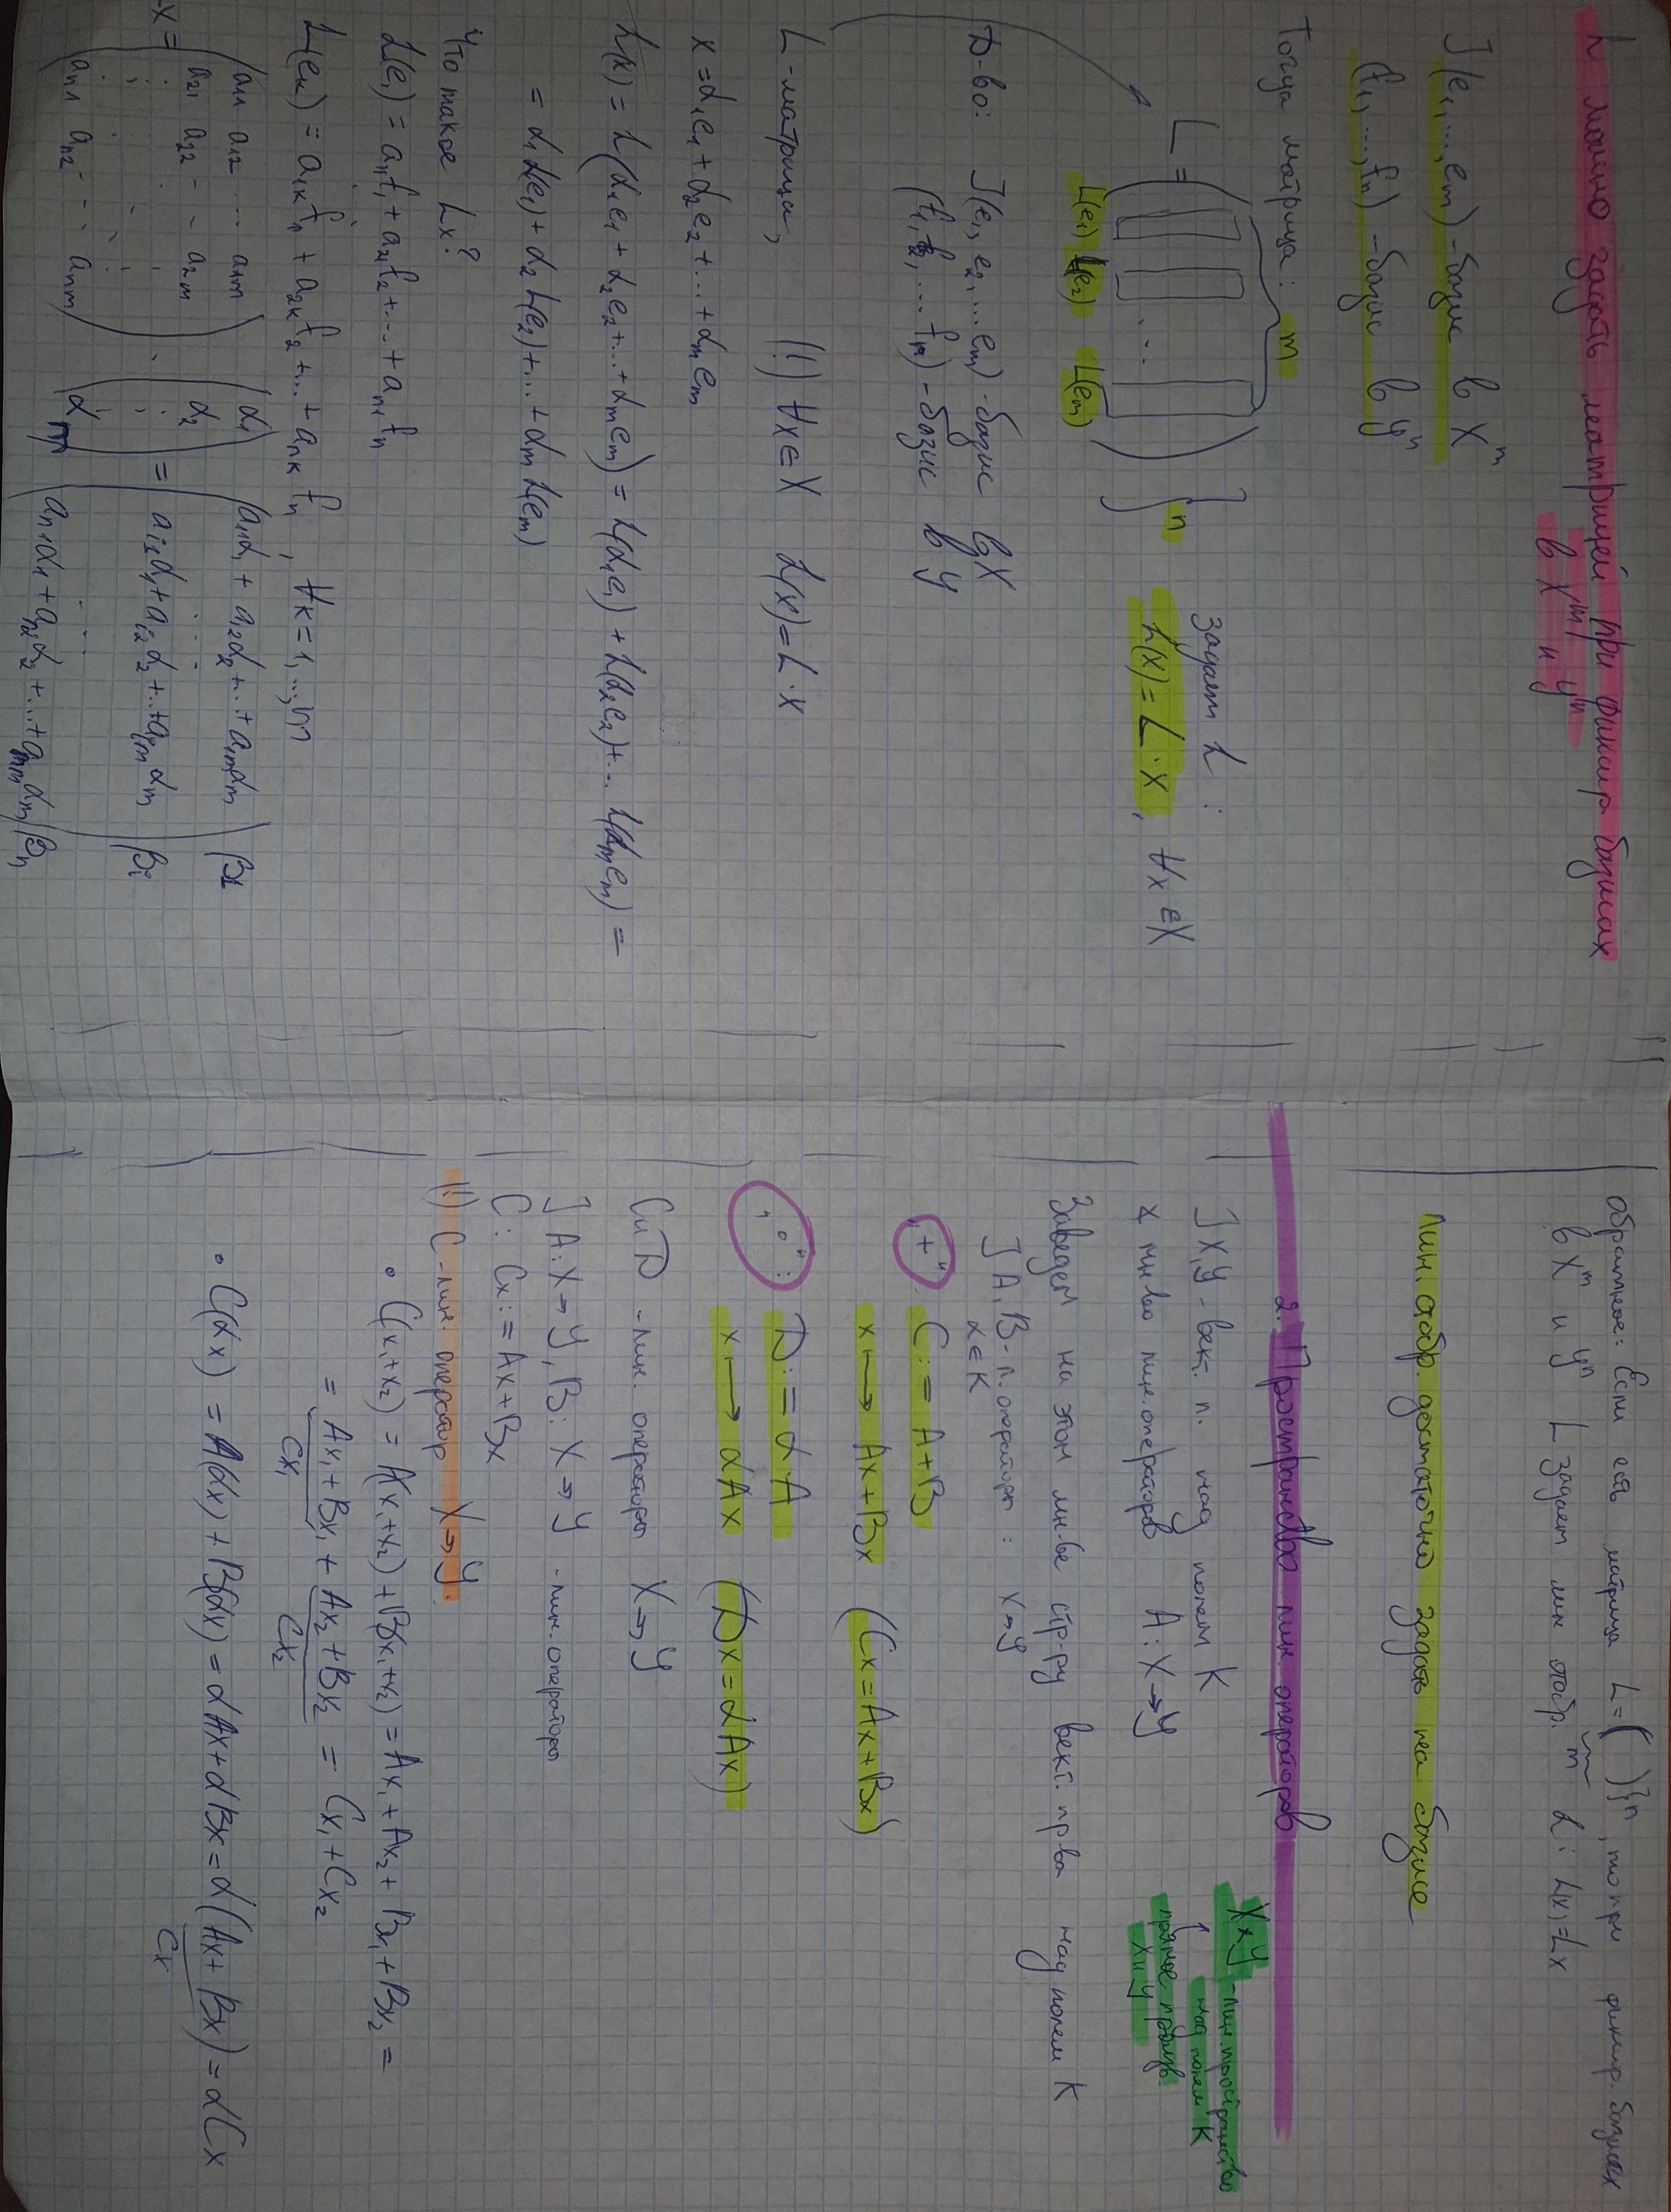 L можно задать матрицей при фиксир. базисах
в X^m и Y^n
] (e₁, ..., eₘ) - базис в X^m
(f₁, ..., fₙ) - базис в Y^n
Тогда матрица:
m
L = ( ... ) } n
L(e₁) L(e₂) L(eₘ)
задаёт L :
L(x) = L · x, ∀x ∈ X
Д-во: ] (e₁, e₂, ... eₘ) - базис в X
(f₁, f₂, ... fₙ) - базис в Y
L - матрица, (!) ∀x ∈ X L(x) = L · x
x = α₁e₁ + α₂e₂ + ... + αₘeₘ
L(x) = L(α₁e₁ + α₂e₂ + ... + αₘeₘ) = L(α₁e₁) + L(α₂e₂) + ... L(αₘeₘ) =
= α₁L(e₁) + α₂L(e₂) + ... + αₘL(eₘ)
Что такое Lx?
L(e₁) = a₁₁f₁ + a₂₁f₂ + ... + aₙ₁fₙ
L(eₖ) = a₁ₖf₁ + a₂ₖf₂ + ... + aₙₖfₙ, ∀k = 1, ..., m
( a₁₁ a₁₂ ... a₁ₘ ) ( α₁ ) ( a₁₁α₁ + a₁₂α₂ + ... + a₁ₘαₘ ) β₁
x = ( a₂₁ a₂₂ - - a₂ₘ ) · ( α₂ ) = ( aᵢ₁α₁ + aᵢ₂α₂ + ... + aᵢₘαₘ ) βᵢ
( aₙ₁ aₙ₂ - - aₙₘ ) ( αₘ ) ( aₙ₁α₁ + aₙ₂α₂ + ... + aₙₘαₘ ) βₙ
обратное: Если есть матрица L = ( ) } n, то при фиксир. базисах
m
в X^m и Y^n L задаёт лин отобр. L : L(x) = Lx
Лин. отобр. достаточно задать на базисе
2. Пространство лин. операторов
] X, Y - вект. п. над полем K
X × Y - лин. пространство
над полем K
прямое произв.
X и Y
мн-во лин. операторов A : X → Y
Заведем на этом мн-ве стр-ру вект. пр-ва над полем K
] A, B - л. операторы : X → Y
α ∈ K
"+": C := A + B
x ⟼ Ax + Bx (Cx = Ax + Bx)
"∘": D := α · A
x ⟼ αAx (Dx = αAx)
C и D - лин. операторы X → Y
] A: X → Y, B: X → Y - лин. операторы
C : Cx := Ax + Bx
(!) C - лин. оператор X → Y.
• C(x₁ + x₂) = A(x₁ + x₂) + B(x₁ + x₂) = Ax₁ + Ax₂ + Bx₁ + Bx₂ =
= Ax₁ + Bx₁ + Ax₂ + Bx₂ = Cx₁ + Cx₂
Cx₁ Cx₂
• C(αx) = A(αx) + B(αx) = αAx + αBx = α(Ax + Bx) = αCx
Cx